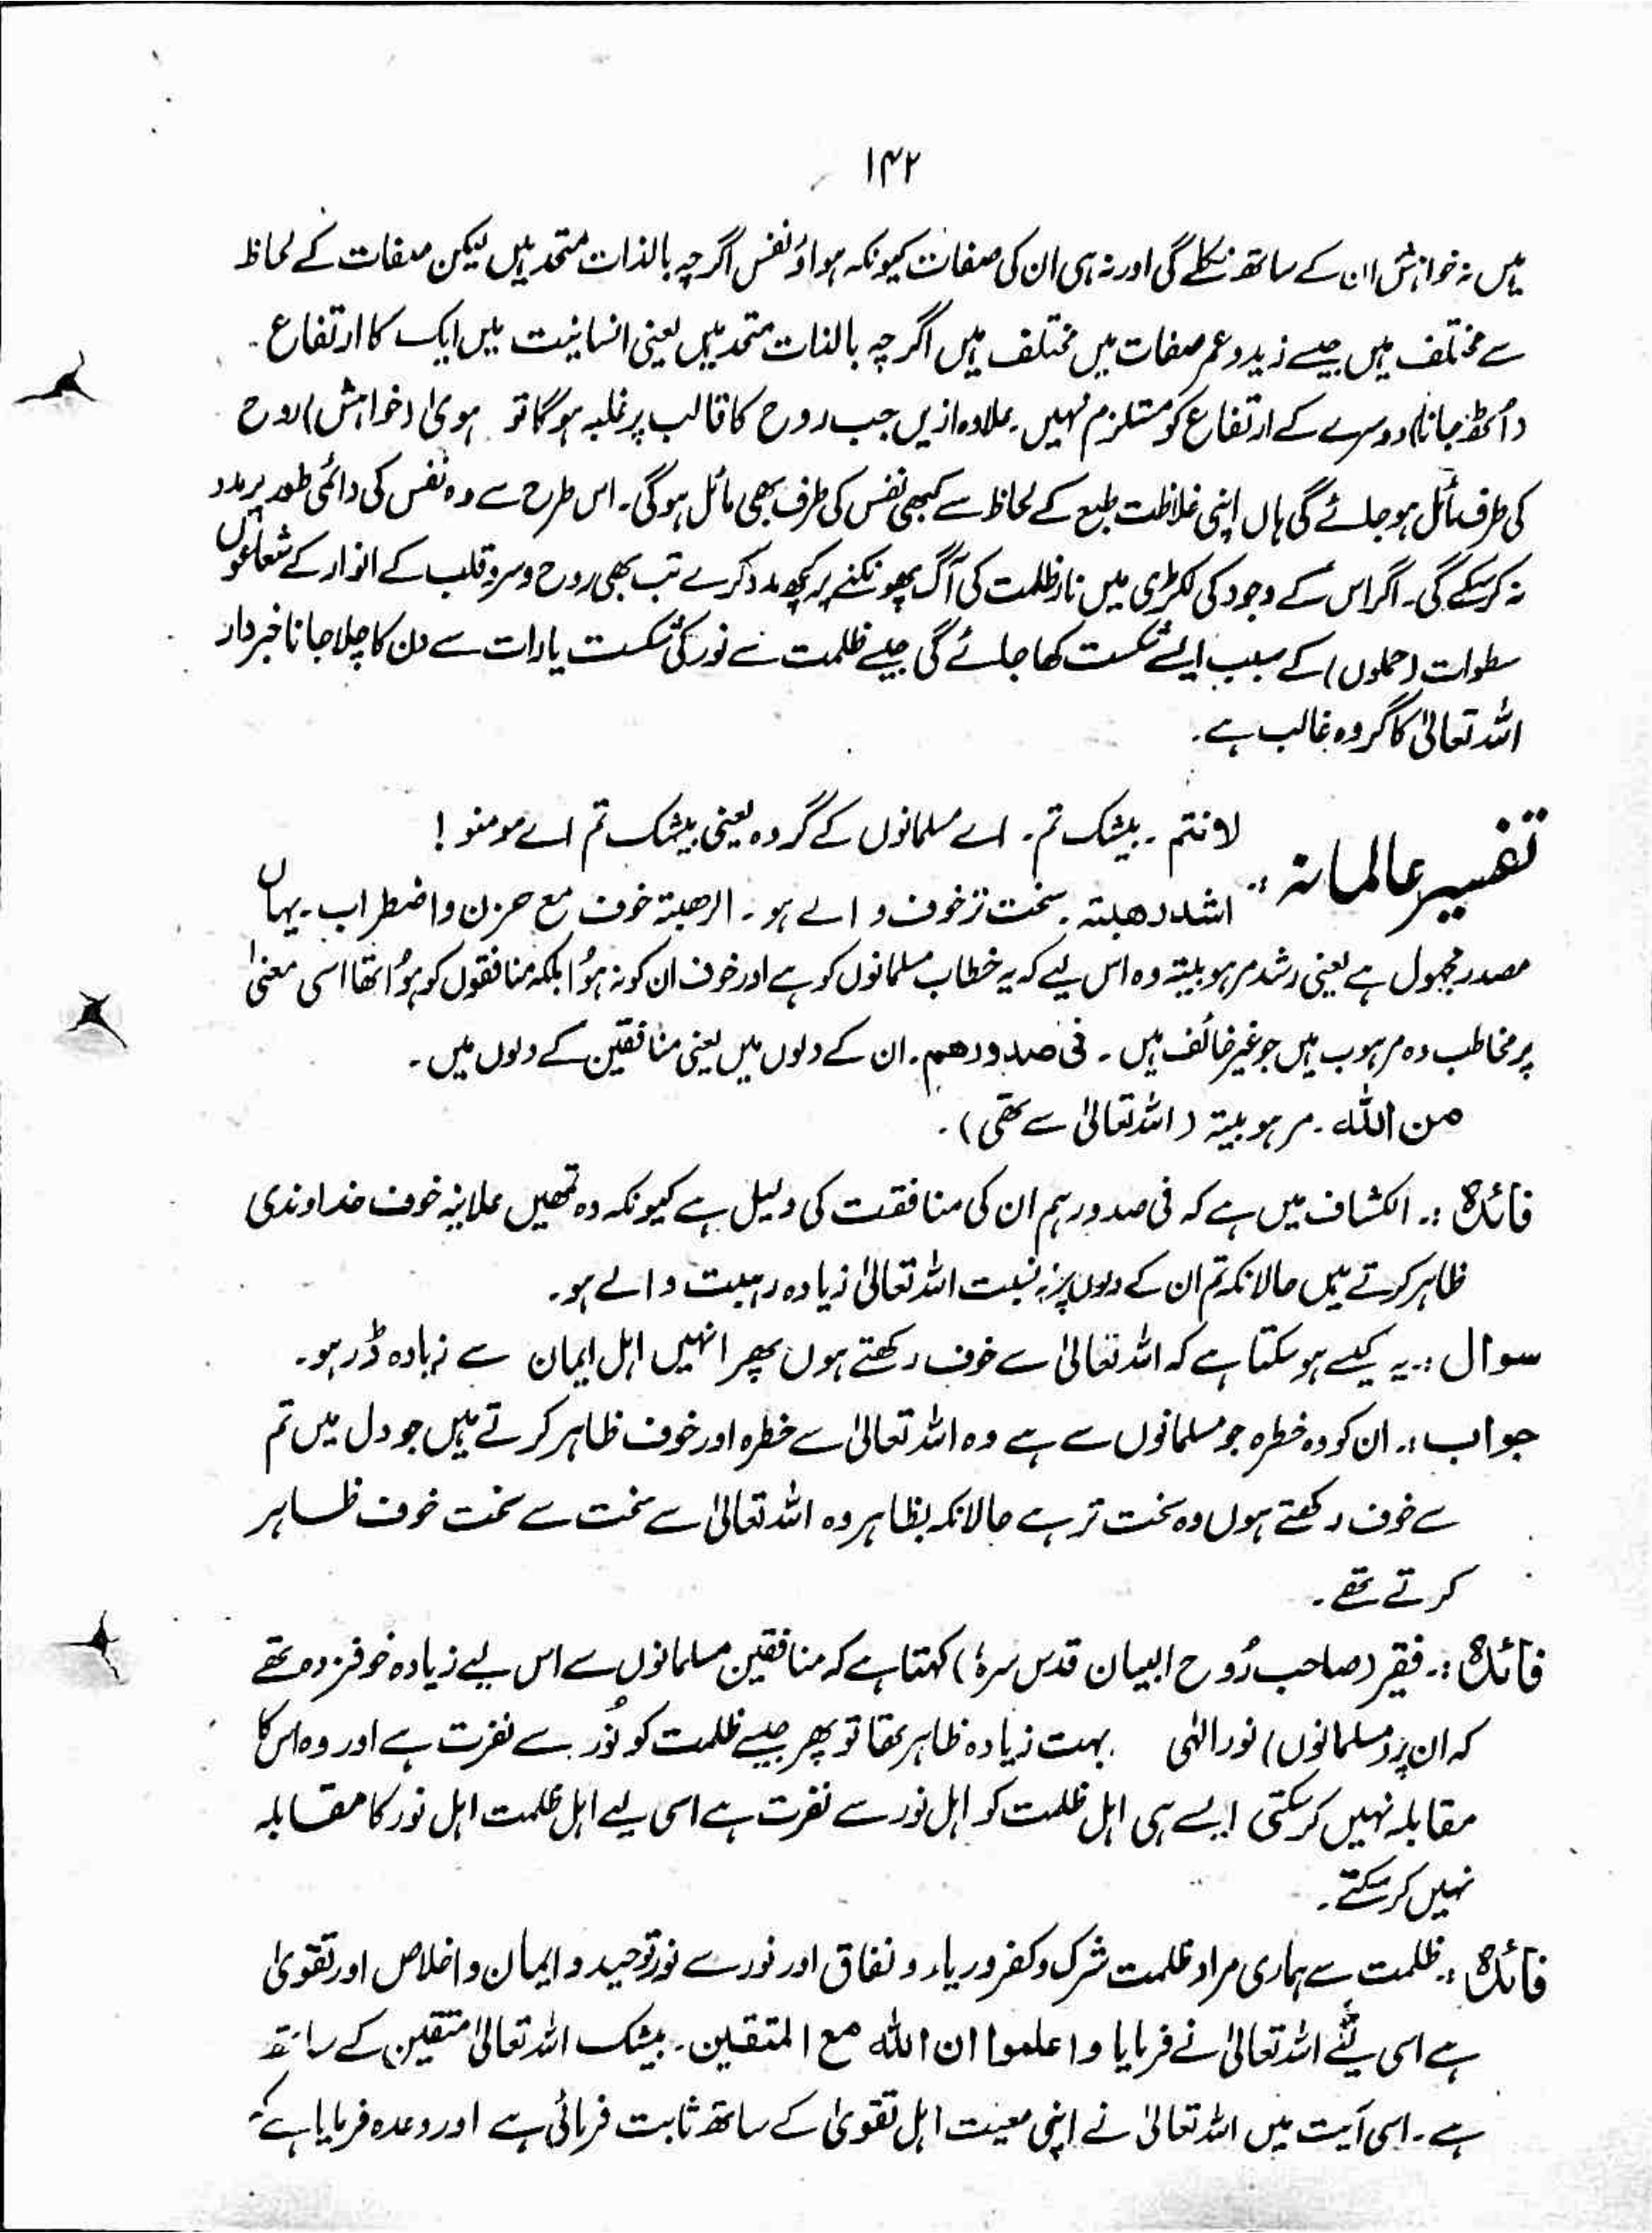 ۱۴۲
میں نہ خواہش ان کے ساتھ نکلے گی اور نہ ہی ان کی صفات کیونکہ ہوا و نفس اگرچہ بالذات متحد ہیں لیکن صفات کے لحاظ
سے مختلف ہیں جیسے زید و عمر صفات میں مختلف ہیں اگرچہ بالذات متحد ہیں یعنی انسانیت میں ایک کا ارتفاع ۔
(اکھڑ جانا) دوسرے کے ارتفاع کو مستلزم نہیں ۔ علاوہ ازیں جب روح کا قالب پر غلبہ ہو گا تو ہویٰ (خواہش) روح
کی طرف مائل ہو جائے گی ہاں اپنی غلاظت طبع کے لحاظ سے کبھی نفس کی طرف بھی مائل ہو گی ۔ اس طرح سے وہ نفس کی دائمی طور پر مدد
نہ کر سکے گی ۔ اگر اس کے وجود کی لکڑی میں نارِ ظلمت کی آگ پھونکنے پر کچھ مدد کرے تب بھی روح و سر و قلب کے انوار کے شعاعوں
سطوات (حملوں) کے سبب ایسے شکست کھا جائے گی جیسے ظلمت سے نور کی شکست یا رات سے دن کا چلا جانا خبردار
اللہ تعالیٰ کا گروہ غالب ہے ۔
تفسیر عالمانہ :۔ لا نتم ۔ بیشک تم ۔ اے مسلمانوں کے گروہ یعنی بیشک تم اے مومنو !
اشد رھبتہ ۔ سخت تر خوف والے ہو ۔ الرھبتہ خوف مع حزن و اضطراب ۔ یہاں
مصدر مجہول ہے یعنی رشد مرہوبیتہ وہ اس لیے کہ یہ خطاب مسلمانوں کو ہے اور خوف ان کو نہ ہوُا بلکہ منافقوں کو ہوُا تھا اسی معنیٰ
پر مخاطب وہ مرہوب ہیں جو غیر خائف ہیں ۔ فی صدورھم ۔ ان کے دلوں میں یعنی منافقین کے دلوں میں ۔
من اللہ ۔ مرہوبیتہ (اللہ تعالیٰ سے تھی) ۔
فائدہ :۔ الکشاف میں ہے کہ فی صدورہم ان کی منافقت کی دلیل ہے کیونکہ وہ تمھیں علانیہ خوف خداوندی
ظاہر کرتے ہیں حالانکہ تم ان کے دلوں پر بہ نسبت اللہ تعالیٰ زیادہ رہبت والے ہو ۔
سوال :۔ یہ کیسے ہو سکتا ہے کہ اللہ تعالیٰ سے خوف رکھتے ہوں پھر انہیں اہل ایمان سے زیادہ ڈر ہو ۔
جواب :۔ ان کو وہ خطرہ جو مسلمانوں سے ہے وہ اللہ تعالیٰ سے خطرہ اور خوف ظاہر کرتے ہیں جو دل میں تم
سے خوف رکھتے ہوں وہ سخت تر ہے حالانکہ بظاہر وہ اللہ تعالیٰ سے سخت سے سخت خوف ظاہر
کرتے تھے ۔
فائدہ :۔ فقیر (صاحب رُوح البیان قدس سرہٗ) کہتا ہے کہ منافقین مسلمانوں سے اس لیے زیادہ خوفزدہ تھے
کہ ان پر (مسلمانوں) نور الٰہی بہت زیادہ ظاہر تھا تو پھر جیسے ظلمت کو نُور سے نفرت ہے اور وہ اس کا
مقابلہ نہیں کر سکتی ایسے ہی اہل ظلمت کو اہل نور سے نفرت ہے اسی لیے اہل ظلمت اہل نور کا مقابلہ
نہیں کر سکتے ۔
فائدہ :۔ ظلمت سے ہماری مراد ظلمت شرک و کفر و ریاء و نفاق اور نور سے نورِ توحید و ایمان و اخلاص اور تقویٰ
ہے اسی لئے اللہ تعالیٰ نے فرمایا واعلموا ان اللہ مع المتقین ۔ بیشک اللہ تعالیٰ متقین کے ساتھ
ہے ۔ اسی آیت میں اللہ تعالیٰ نے اپنی معیت اہل تقویٰ کے ساتھ ثابت فرمائی ہے اور وعدہ فرمایا ہے کہ